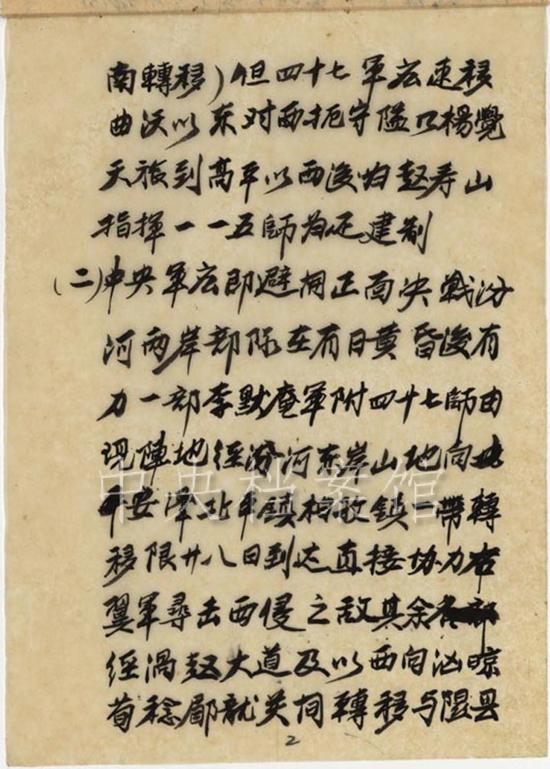 南轉移）但四十七軍应速移
曲沃以东对西扼守隘口楊覺
天旅到高平以西後归赵寿山
指揮一一五師为足建制
（二）中央軍应即避開正面决戰汾
河两岸部隊在有日黄昏後有
力一部李默庵軍附四十七師由
现陣地経汾河东岸山地向
安澤北平鎮柏敬鎮一帶轉
移限廿八日到达直接协力右
翼軍尋击西侵之敌其余
経洪赵大道及以西向汹
稔鄜就关间轉移与隰县
2
中央档案馆